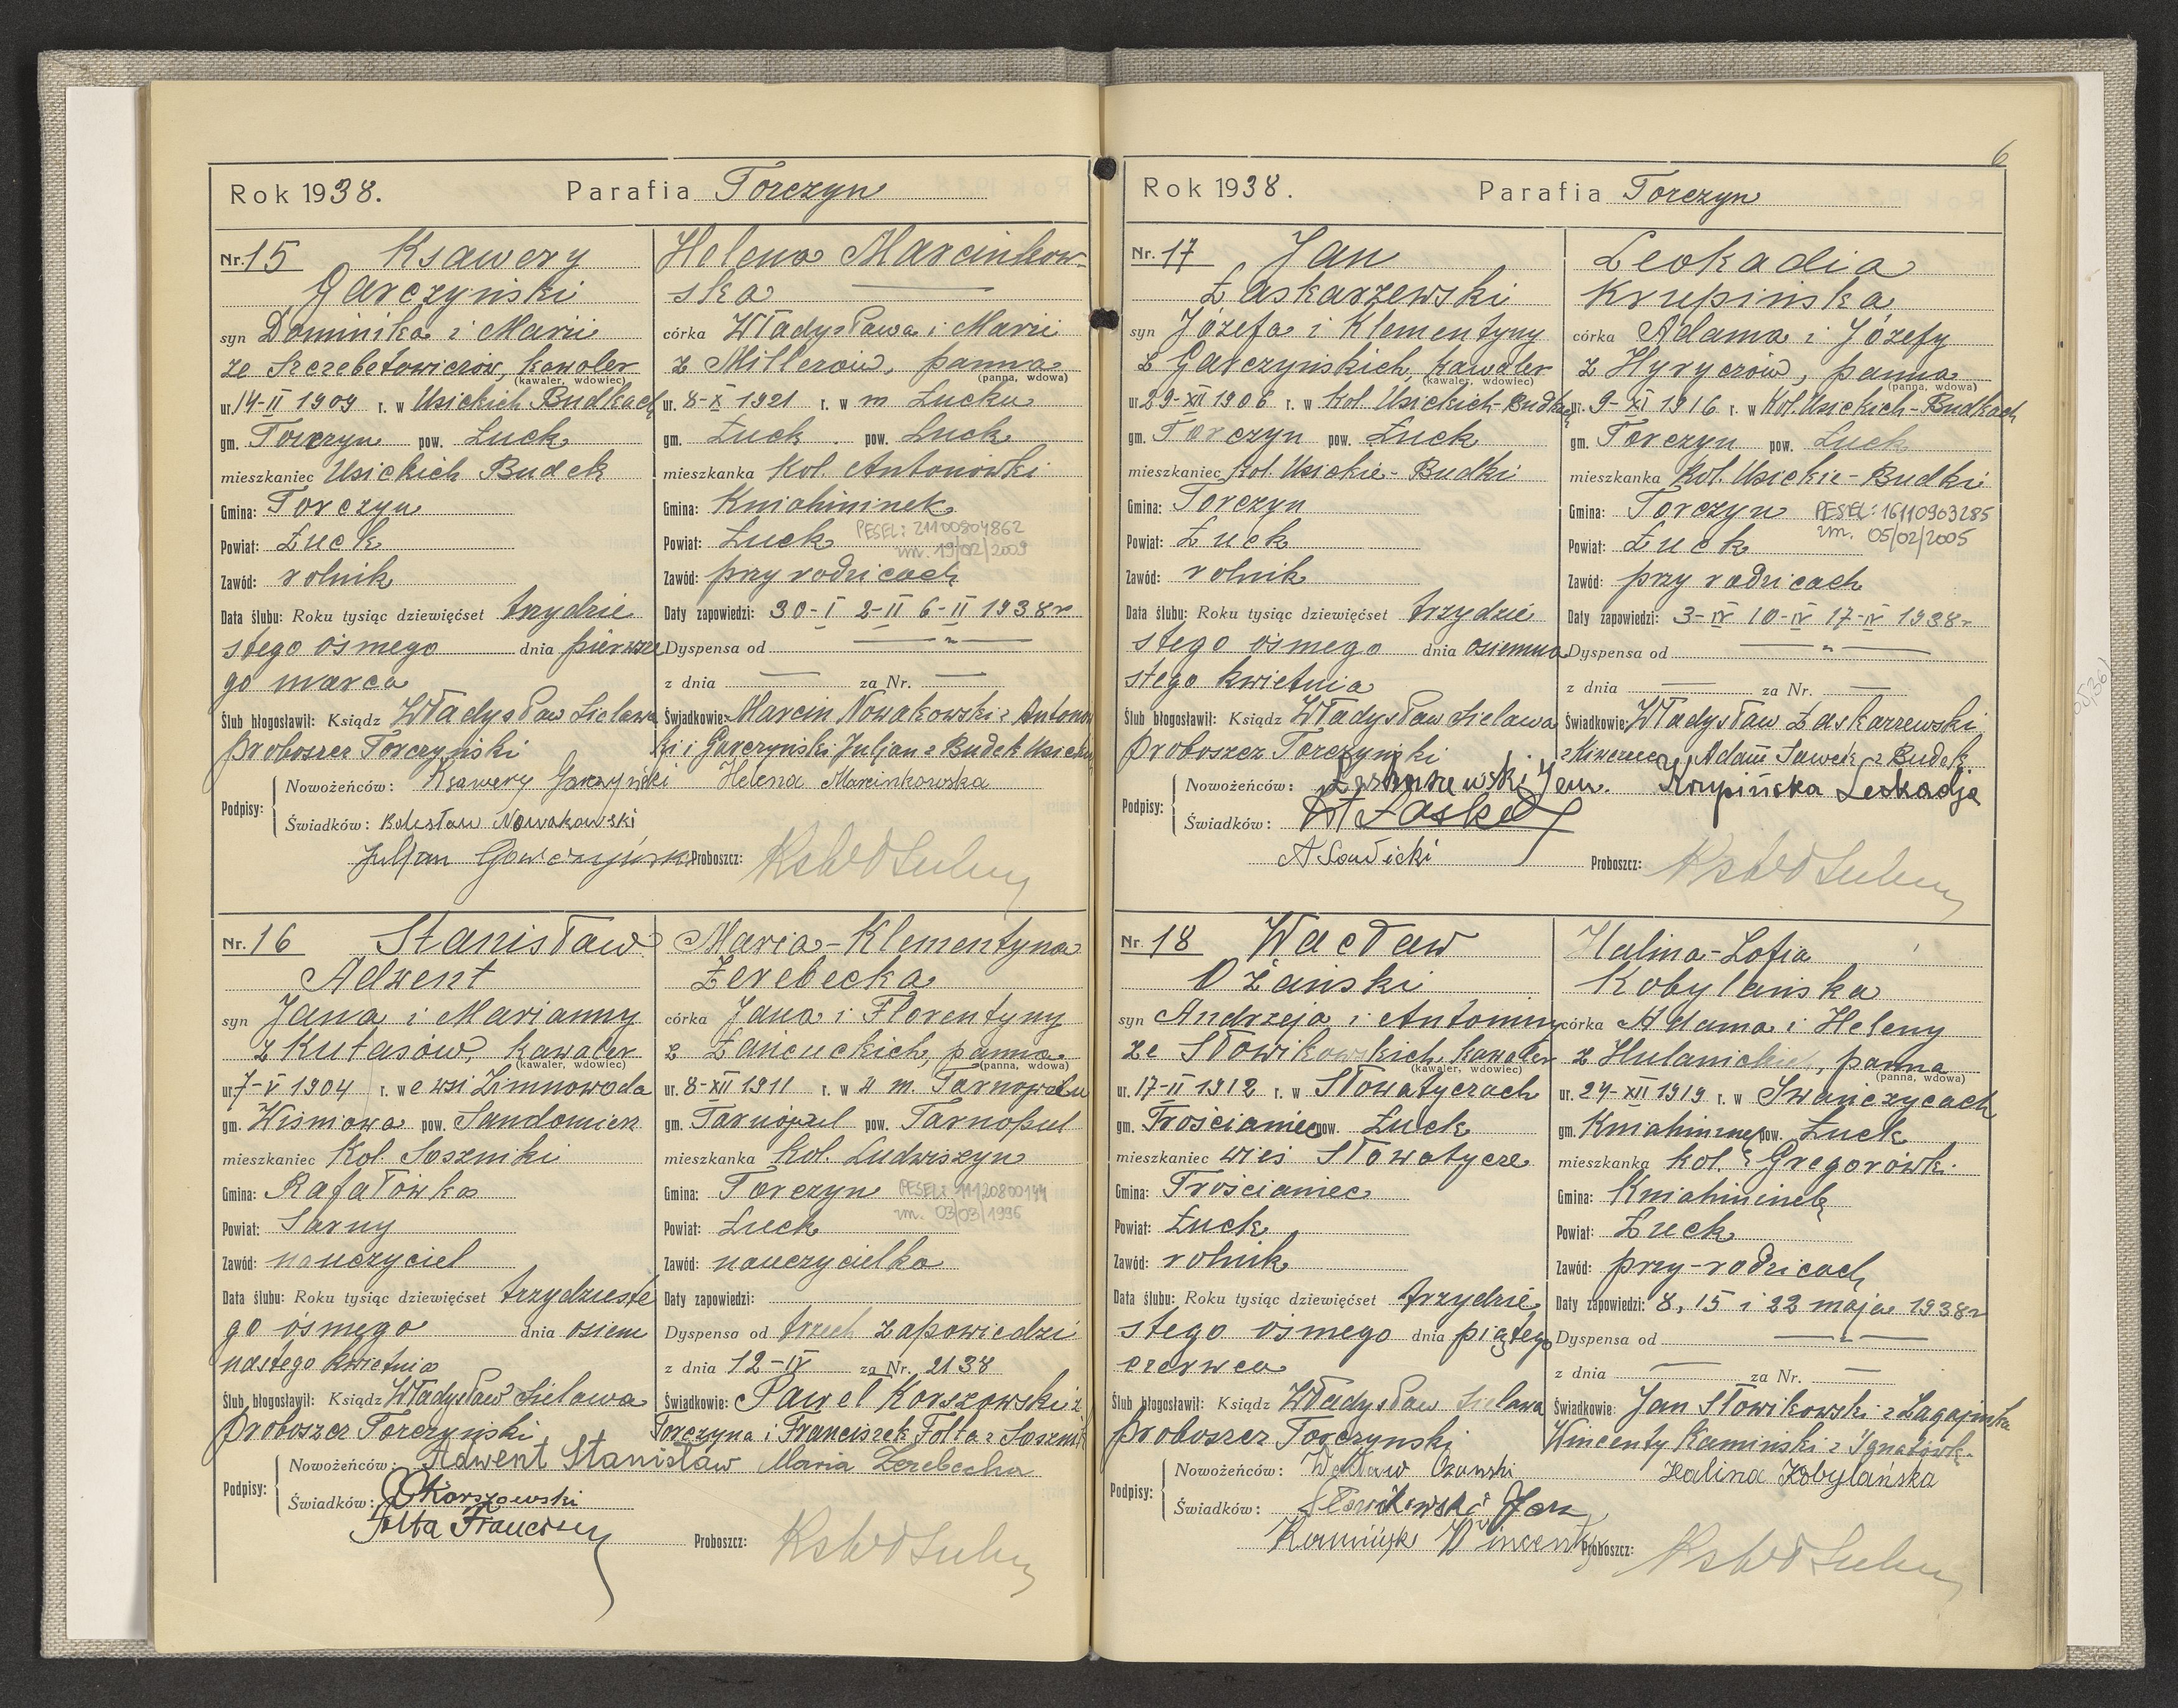 6
Rok 1938. Parafia Torczyn
Nr. 15 Ksawery
Garczyński
syn Dominika i Marii
ze Szczebetowiczów, kawaler
(kawaler, wdowiec)
ur. 14-II 1909 r. w Usickich Budkach
gm. Torczyn pow. Łuck
mieszkaniec Usickich Budek
Gmina: Torczyn
Powiat: Łuck
Zawód: rolnik
Data ślubu: Roku tysiąc dziewięćset trzydzie
stego ósmego dnia pierwsze
go marca
Ślub błogosławił: Ksiądz Władysław Sielawa
proboszcz Torczyński
Helena Marcinkow-
ska
córka Władysława i Marii
z Millerów, panna
(panna, wdowa)
ur. 8-X 1921 r. w m Łucku
gm. Łuck pow. Łuck
mieszkanka Kol. Antonówki
Gmina: Kniahininek
Powiat: Łuck PESEL: 21100804862
zm. 19/02/2009
Zawód: przy rodzicach
Daty zapowiedzi: 30-I 2-II 6-II 1938r
Dyspensa od — " —
z dnia — za Nr. —
Świadkowie: Marcin Nowakowski z Antonów
ki i Garczyński Juljan z Budek Usickich
Podpisy: Nowożeńców: Ksawery Garczyński Helena Marcinkowska
Świadków: Bolesław Nowakowski
Juljan Garczyński Proboszcz:
Nr. 16 Stanisław
Adwent
syn Jana i Marianny
z Kutasów, kawaler
(kawaler, wdowiec)
ur. 7-V 1904 r. we wsi Zimnowoda
gm. Wiśniowa pow. Sandomierz
mieszkaniec Kol. Soszniki
Gmina: Rafałówka
Powiat: Sarny
Zawód: nauczyciel
Data ślubu: Roku tysiąc dziewięćset trzydzieste
go ósmego dnia osiem
nastego kwietnia
Ślub błogosławił: Ksiądz Władysław Sielawa
proboszcz Torczyński
Maria-Klementyna
Żerebecka
córka Jana i Florentyny
z Łańcuckich, panna
(panna, wdowa)
ur. 8-XII 1911 r. w m. Tarnopolu
gm. Tarnopol pow. Tarnopol
mieszkanka Kol. Ludwiszyn
Gmina: Torczyn PESEL: 11120800144
zm. 03/03/1996
Powiat: Łuck
Zawód: nauczycielka
Daty zapowiedzi:
Dyspensa od trzech zapowiedzi
z dnia 12-IV za Nr. 2138
Świadkowie: Paweł Korszowski z
Torczyna i Franciszek Fołta z Sosznik
Podpisy: Nowożeńców: Adwent Stanisław Maria Żerebecka
Świadków: Korszowski
Fołta Franciszek
Proboszcz:
Rok 1938. Parafia Torczyn
Nr. 17 Jan
Łaskarzewski
syn Józefa i Klementyny
z Garczyńskich, kawaler
(kawaler, wdowiec)
ur. 29-XII 1906 r. w Kol. Usickich-Budkach
gm. Torczyn pow. Łuck
mieszkaniec Kol. Usickie-Budki
Gmina: Torczyn
Powiat: Łuck
Zawód: rolnik
Data ślubu: Roku tysiąc dziewięćset trzydzie
stego ósmego dnia osiemna
stego kwietnia
Ślub błogosławił: Ksiądz Władysław Sielawa
proboszcz Torczyński
Leokadia
Krupińska
córka Adama i Józefy
z Hyryczów, panna
(panna, wdowa)
ur. 9-XI 1916 r. w Kol. Usickich-Budkach
gm. Torczyn pow. Łuck
mieszkanka Kol. Usickie-Budki
Gmina: Torczyn PESEL: 16110903285
zm. 05/02/2005
Powiat: Łuck
Zawód: przy rodzicach
Daty zapowiedzi: 3-IV 10-IV 17-IV 1938r
Dyspensa od — " —
z dnia — za Nr. —
Świadkowie: Władysław Łaskarzewski
z Kiwerzec, Adam Sawicki z Budek
Podpisy: Nowożeńców: Łaskarzewski Jan. Krupińska Leokadja
Świadków: Wł Łaska
A Sawicki
Proboszcz:
Nr. 18 Wacław
Ożański
syn Andrzeja i Antoniny
ze Słowikowskich, kawaler
(kawaler, wdowiec)
ur. 17-II 1912 r. w Słowatyczach
gm. Trościaniec pow. Łuck
mieszkaniec wieś Słowatycze
Gmina: Trościaniec
Powiat: Łuck
Zawód: rolnik
Data ślubu: Roku tysiąc dziewięćset trzydzie
stego ósmego dnia piątego
czerwca
Ślub błogosławił: Ksiądz Władysław Sielawa
proboszcz Torczyński
Halina-Zofia
Kobylańska
córka Adama i Heleny
z Hulanickich, panna
(panna, wdowa)
ur. 24-XII 1919 r. w Iwańczycach
gm. Kniahininek pow. Łuck
mieszkanka kol. Gregorówki
Gmina: Kniahininek
Powiat: Łuck
Zawód: przy-rodzicach
Daty zapowiedzi: 8, 15 i 22 maja 1938r
Dyspensa od — " —
z dnia — za Nr. —
Świadkowie: Jan Słowikowski z Zagajnika
Wincenty Kamiński z Ignatówk.
Podpisy: Nowożeńców: Wacław Ożański Halina Kobylańska
Świadków: Słowikowski Jan
Kamiński Wincenty Proboszcz: